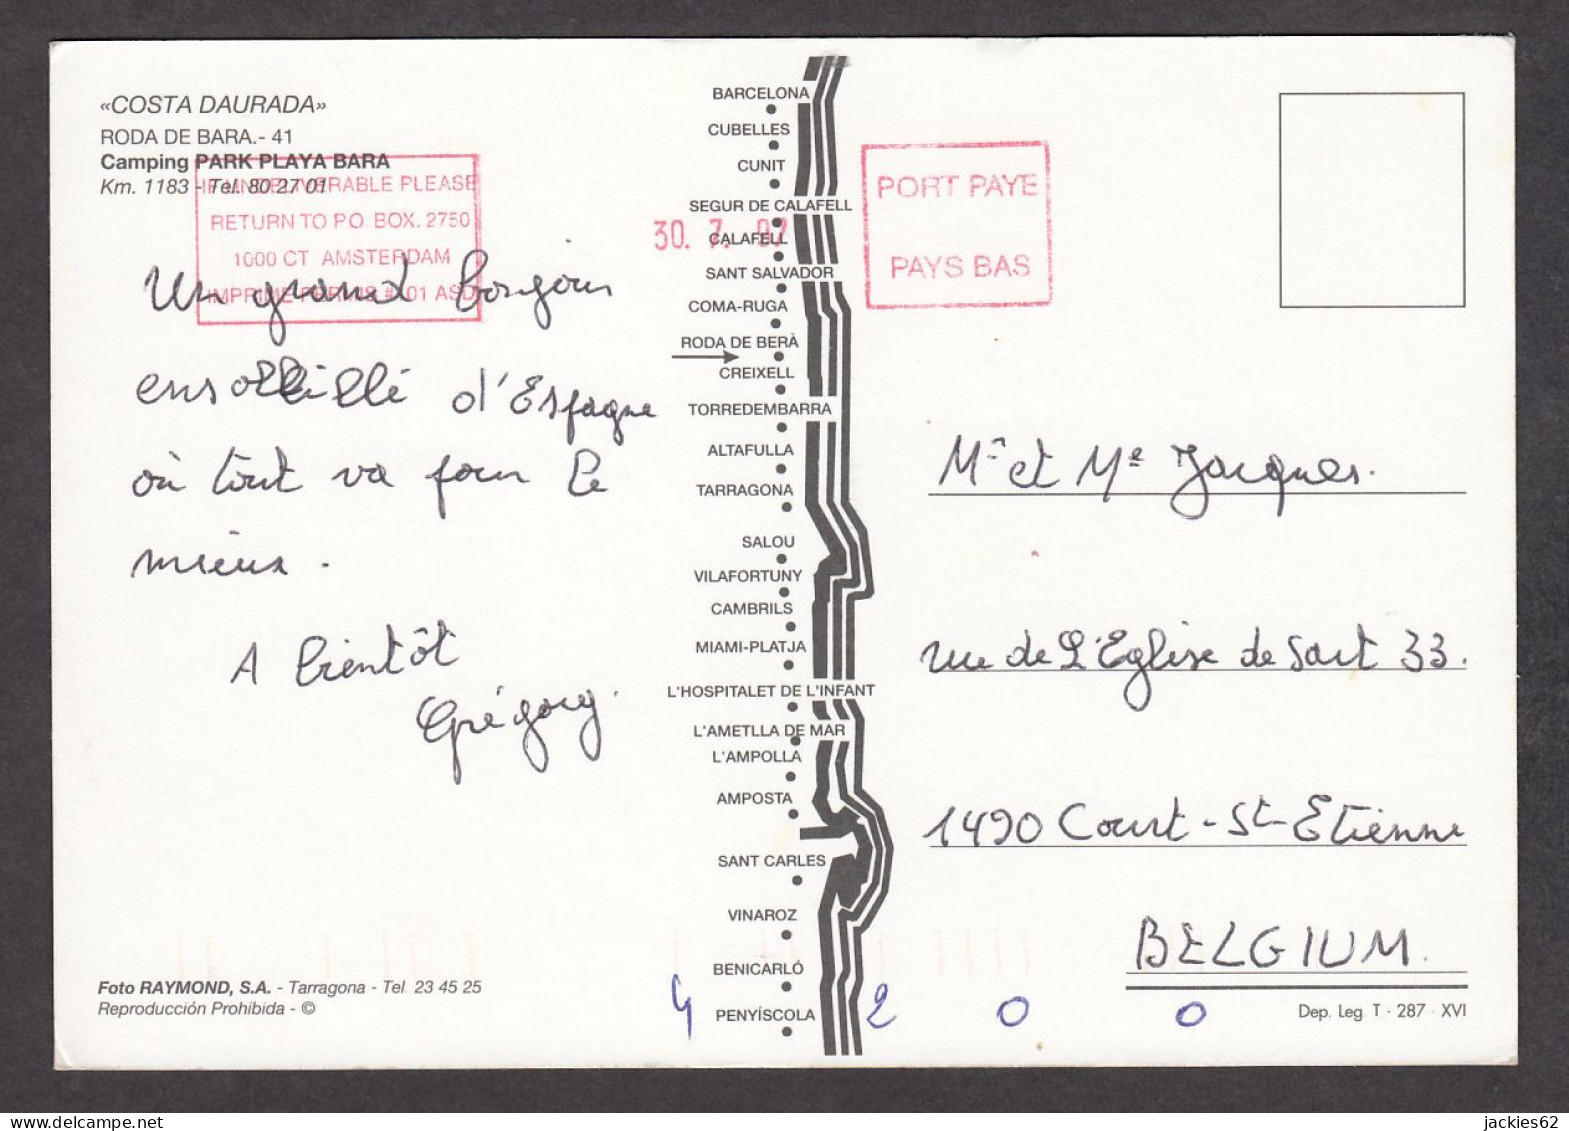 «COSTA DAURADA»
RODA DE BARA.- 41
Camping PARK PLAYA BARA
Km. 1183 - Tel. 80 27 01
IF UNDELIVERABLE PLEASE
RETURN TO P.O. BOX. 2750
1000 CT AMSTERDAM
IMPRIME PERMIS # 01 ASD
Un grand bonjour
ensolleillé d'Espagne
où tout va pour le
mieux.
A bientôt
Grégory.
Foto RAYMOND, S.A. - Tarragona - Tel. 23 45 25
Reproducción Prohibida - ©
BARCELONA
CUBELLES
CUNIT
SEGUR DE CALAFELL
30. 7. 97
CALAFELL
SANT SALVADOR
COMA-RUGA
RODA DE BERÀ
CREIXELL
TORREDEMBARRA
ALTAFULLA
TARRAGONA
SALOU
VILAFORTUNY
CAMBRILS
MIAMI-PLATJA
L'HOSPITALET DE L'INFANT
L'AMETLLA DE MAR
L'AMPOLLA
AMPOSTA
SANT CARLES
VINAROZ
BENICARLÓ
PENYÍSCOLA
PORT PAYE
PAYS BAS
Mr et Me Jacques.
rue de L'Eglise de Sart 33.
1490 Court-St-Etienne
BELGIUM.
4 2 0 0
Dep. Leg. T - 287 - XVI
jackies62